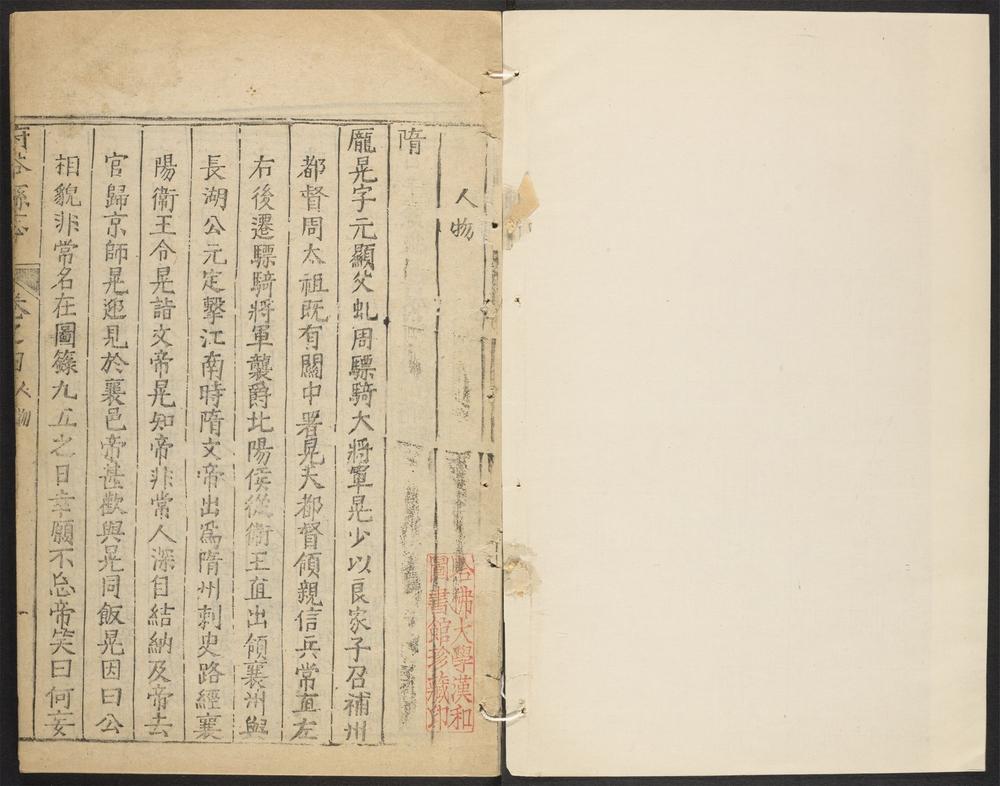 人物
隋
龐晃字元顯父虬周驃騎大將軍晃少以良家子召補州
都督周太祖既有關中署晃大都督領親信兵常直左
右後遷驃騎將軍襲爵比陽侯從衛王直出領襄州與
長湖公元定擊江南時隋文帝出爲隋州刺史路經襄
陽衛王令晃詣文帝晃知帝非常人深自結納及帝去
官歸京師晃迎見於襄邑帝甚歡與晃同飯晃因曰公
相貌非常名在圖籙九五之日幸願不忘帝笑曰何妄
縣志 卷之四 人物 一
哈佛大學漢和
圖書館珍藏印